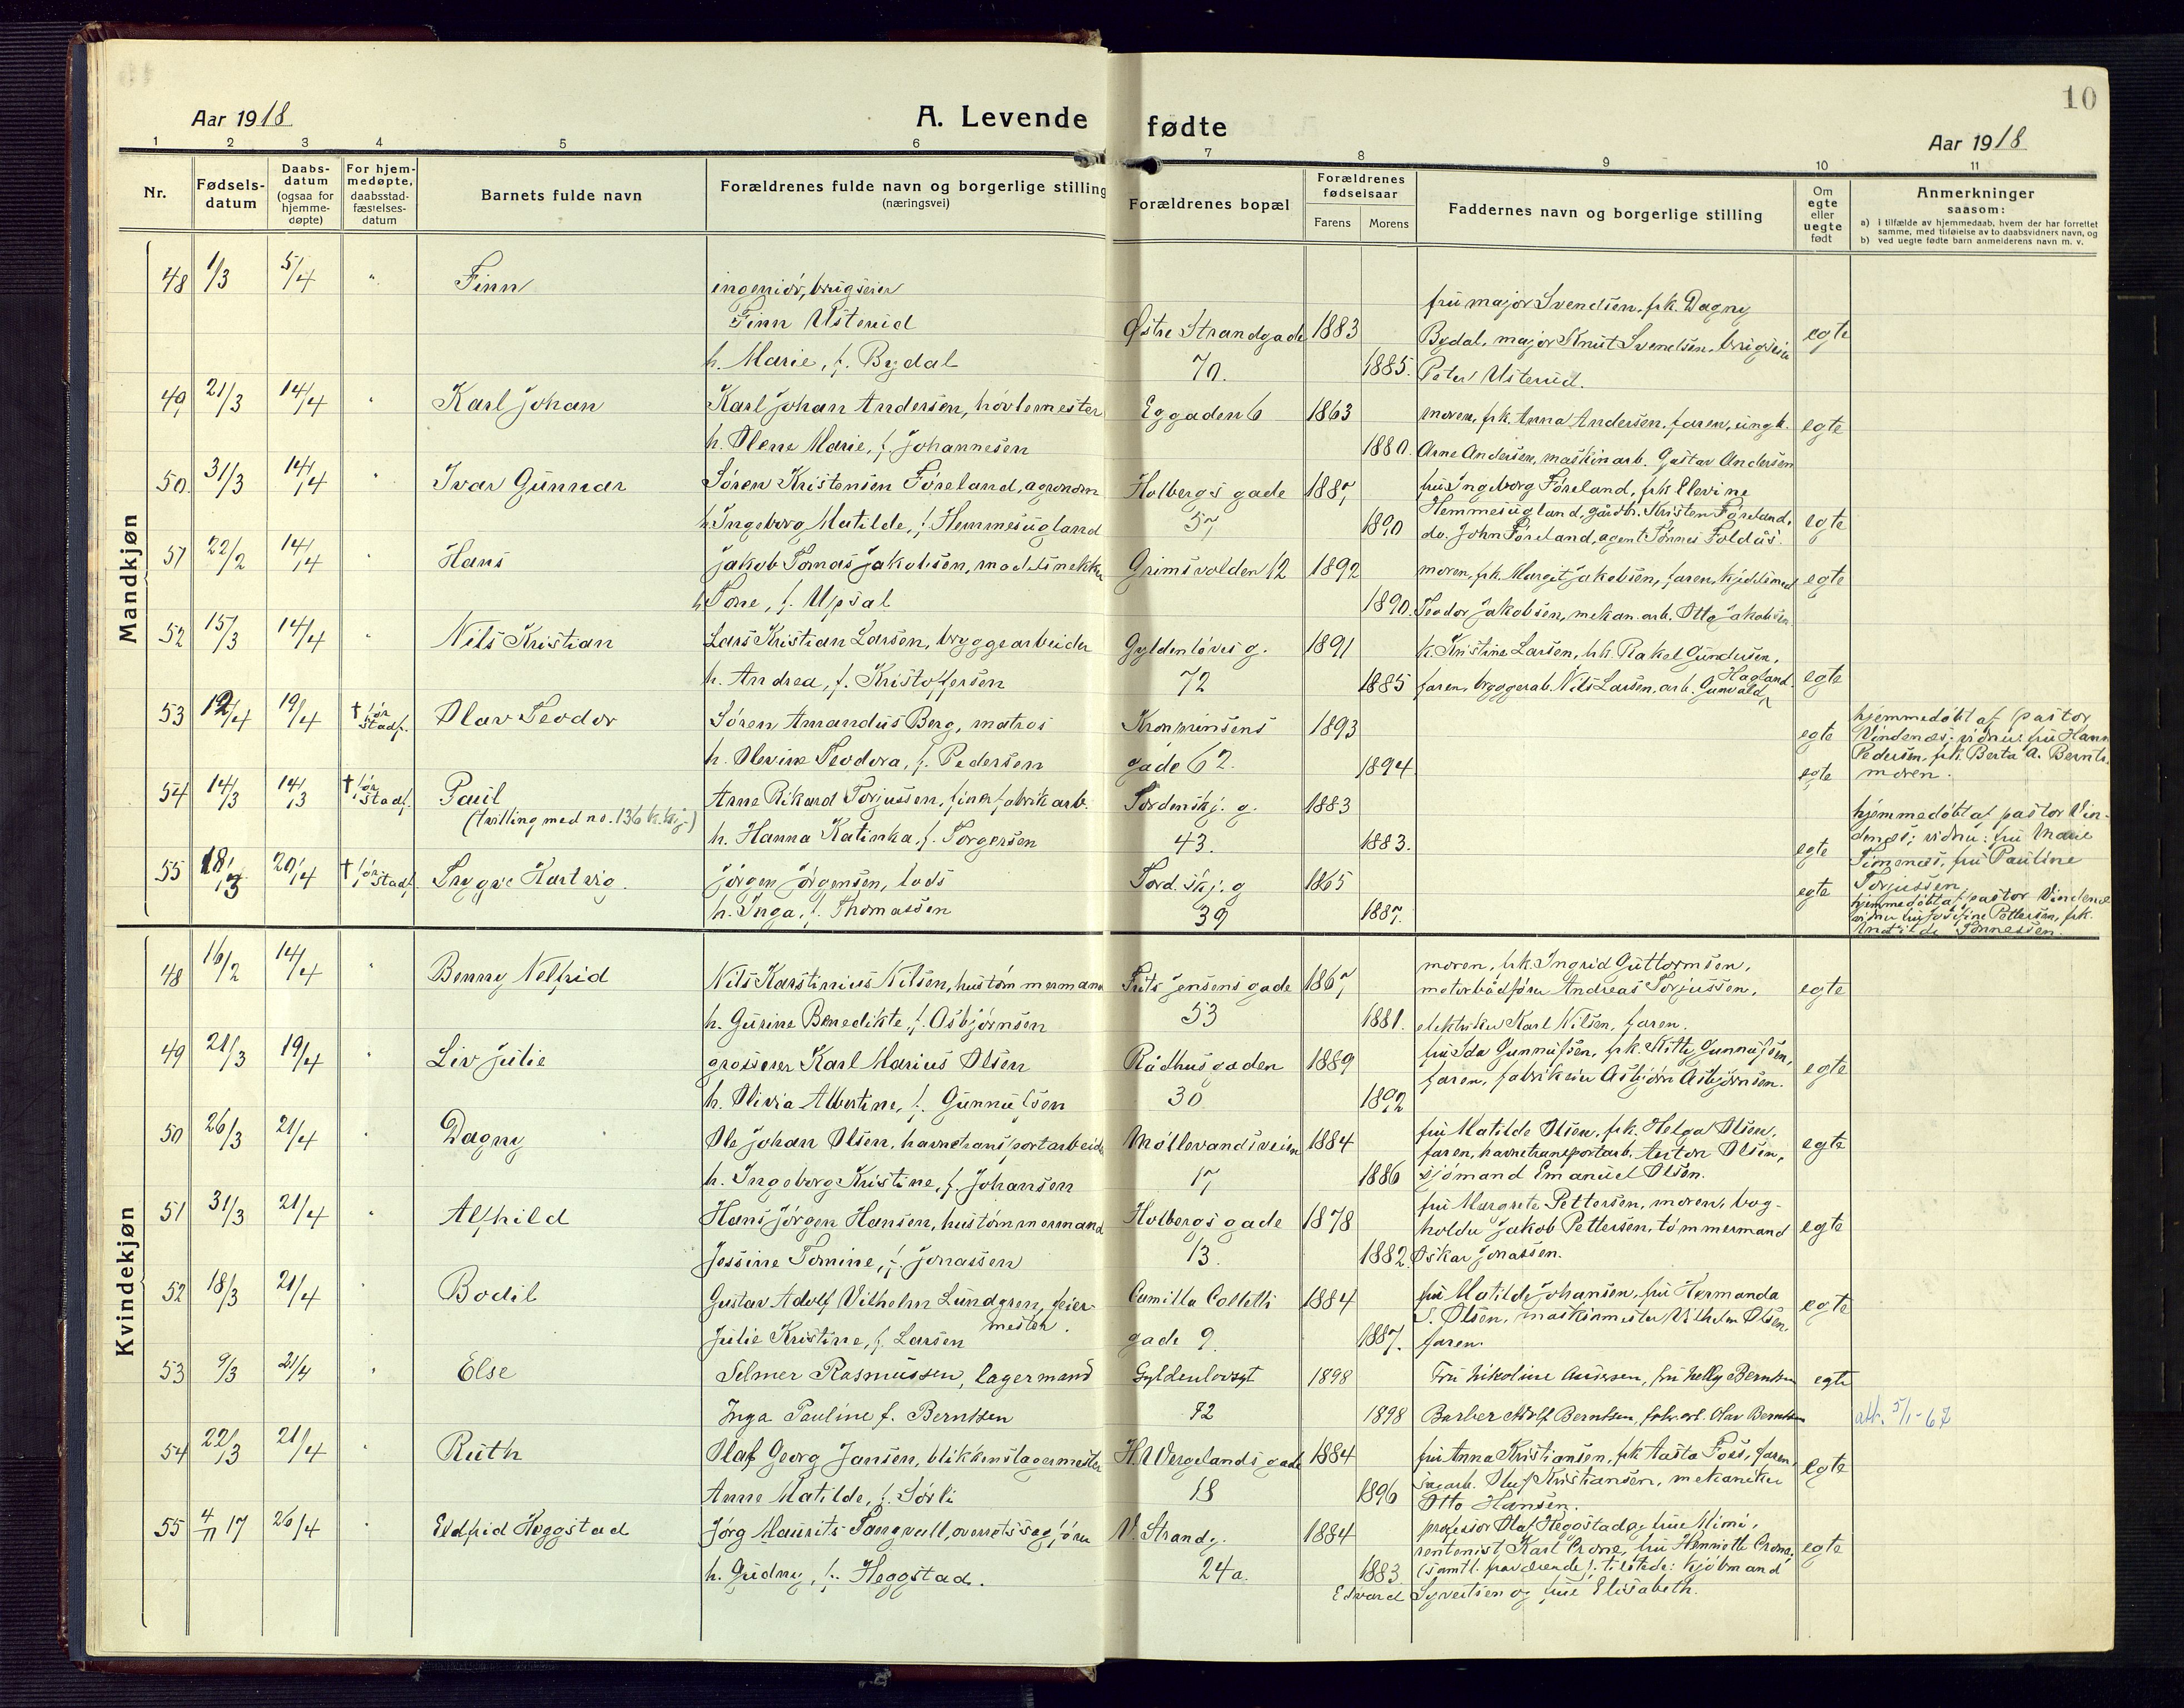 10
Aar 1918
A. Levende fødte
Aar 1918
1 2 3 4 5 6 7 8 9 10 11
Nr.
Fødsels-
datum
Daabs-
datum
(ogsaa for
hjemme-
døpte)
For hjem-
medøpte,
daabsstad-
fæstelses-
datum
Barnets fulde navn
Forældrenes fulde navn og borgerlige stilling
(næringsvei)
Forældrenes bopæl
Forældrenes
fødselsaar
Farens Morens
Faddernes navn og borgerlige stilling
Om
egte
eller
uegte
født
Anmerkninger
saasom:
a) i tilfælde av hjemmedaab, hvem der har forrettet
samme, med tilføielse av to daabsvidners navn, og
b) ved uegte fødte barn anmelderens navn m. v.
Mandkjøn
48 1/3 5/4 " Finn
ingeniør, brugseier
Finn Usterud
h. Marie, f. Bydal
Østre Strandgade 70. 1883 1885.
fru major Svendsen, frk. Dagny
Bydal, major Knut Svendsen, brugseier
Peter Usterud.
egte
49 21/3 14/4 " Karl Johan
Karl Johan Andersen, høvlemester
h. Olene Marie, f. Johannesen
Eggaden 6 1863 1880.
moren, frk. Anna Andersen, faren, ungk.
Arne Andersen, maskinarb. Gustav Andersen
egte
50. 31/3 14/4 " Ivar Gunnar
Søren Kristensen Føreland, agronom
h. Ingeborg Matilde, f. Hemmesugland
Holbergs gade 57 1887 1890
fru Ingeborg Føreland, frk. Elevine
Hemmesugland, gårdbr. Kristen Føreland,
do. John Føreland, agent Tønnes Foldås.
egte
51 22/2 14/4 " Hans
Jakob Tomas Jakobsen, modelsnekker
h. Tone, f. Upsal
Grimsvolden 12 1892 1890.
moren, frk. Margit Jakobsen, faren, kjedelsmed
Teodor Jakobsen, mekan. arb. Otto Jakobsen
egte
52 15/3 14/4 " Nils Kristian
Lars Kristian Larsen, bryggearbeider
h. Andrea, f. Kristoffersen
Gyldenløves g. 72 1891 1885
k. Kristine Larsen, frk. Rakel Gundersen,
faren, bryggerab. Nils Larsen, arb. Gunvald Hagland.
egte
53 12/4 19/4 † før stadf. Olav Teodor
Søren Amandus Berg, matros
h. Olevine Teodora, f. Pedersen
Kronprinsens gade 62. 1893 1894.
egte
egte
hjemmedøbt af pastor
Vindenæs; vidner: fru Hann
Pedersen, frk. Berta A. Bernts.
moren.
54 14/3 14/3 † før stadf. Paul
(tvilling med no. 136 k.kj.)
Arne Rikard Torjussen, finerfabrikarb.
h. Hanna Katinka, f. Torgersen
Tordenskj. g. 43. 1883 1883.
egte
hjemmedøbt af pastor Vin-
denæs; vidner: fru Marie
Timenæs, fru Pauline
Torjussen
55 18/3 20/4 † før stadf. Trygve Hartvig.
Jørgen Jørgensen, lods
h. Inga, f. Thomassen
Tord. skj. g 39 1865 1887.
egte
hjemmedøbt af pastor Vindenæs
vidner fru Josefine Pettersen, frk.
Matilde Tønnessen.
Kvindekjøn
48 16/2 14/4 " Benny Nelfrid
Nils Karstinius Nilsen, hustømmermand
h. Gurine Benedikte, f. Asbjørnsen
Frits Jensens gade 53 1867 1881.
moren, frk. Ingrid Guttormsen,
motorbådfører Andreas Torjussen,
elektriker Karl Nilsen, faren.
egte
49 21/3 19/4 " Liv Julie
grosserer Karl Marius Olsen
h. Olivia Albertine, f. Gunnulfsen
Rådhusgaden 30 1889 1892
fru Ida Gunnulfsen, frk. Kitty Gunnulfsen,
faren, fabrikeier Asbjørn Asbjørnsen.
egte
50 26/3 21/4 " Dagny
Ole Johan Olsen, havnetransportarbeider
h. Ingeborg Kristine, f. Johansen
Møllevandsveien 17 1884 1886
fru Matilde Olsen, frk. Helga Olsen,
faren, havnetransportarb. Anton Olsen,
sjømand Emanuel Olsen.
egte
51 31/3 21/4 " Alfhild
Hans Jørgen Hansen, hustømmermand
Jossine Tomine, f. Jonassen
Holbergs gade 13. 1878 1882.
fru Margrete Pettersen, moren, bog-
holder Jakob Pettersen, tømmermand
Oskar Jonassen.
egte
52 18/3 21/4 " Bodil
Gustav Adolf Vilhelm Lundgren, feier-
mester.
Julie Kristine, f. Larsen
Camilla Colletts gade 9. 1884 1887.
fru Matilde Johansen, fru Hermanda
S. Olsen, maskinmester Vilhelm Olsen,
faren.
egte
53 9/3 21/4 " Else
Selmer Rasmussen, lagermand
Inga Pauline f. Berntsen
Gyldenlovsgt 72 1898 1898
Fru Nikoline Andersen, fru Nelly Berntsen
Barber Adolf Berntsen, fabr. arb. Olav Berntsen
egte
att. 5/1-67
54 22/3 21/4 " Ruth
Olaf Georg Jansen, blikkenslagermester
Anne Matilde, f. Sørli
H. Wergelands gade 18 1884 1896
fru Anna Kristiansen, frk Aasta Foss, faren,
Oluf Kristiansen, mekaniker
Otto Hansen.
egte
55 4/11 17 26/4 " Eldfrid Heggstad
Jørg Maurits Tangvall, overretssagfører
h. Gudny, f. Heggstad.
V. Strandg. 24a. 1884 1883
professor Olaf Heggstad og frue Mimi,
rentenist Karl Crone, fru Henriette Crone,
(samtl. fraværende); tilstede: kjøbmand
Edvard Syvertsen og frue Elisabeth.
egte